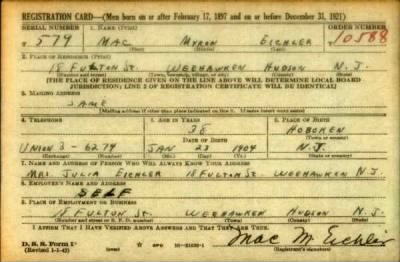 REGISTRATION CARD—(Men born on or after February 17, 1897 and on or before December 31, 1921)
SERIAL NUMBER 1. NAME (Print) ORDER NUMBER
579 MAC MYRON EICHLER 10588
(First) (Middle) (Last)
2. PLACE OF RESIDENCE (Print)
18 FULTON ST. WEEHAWKEN HUDSON N.J.
(Number and street) (Town, township, village, or city) (County) (State)
[THE PLACE OF RESIDENCE GIVEN ON THE LINE ABOVE WILL DETERMINE LOCAL BOARD
JURISDICTION; LINE 2 OF REGISTRATION CERTIFICATE WILL BE IDENTICAL]
3. MAILING ADDRESS
SAME
[Mailing address if other than place indicated on line 2. If same insert word same]
4. TELEPHONE 5. AGE IN YEARS 6. PLACE OF BIRTH
38 HOBOKEN
DATE OF BIRTH (Town or county)
UNION 3-6279 JAN 23 1904 N.J.
(Mo.) (Day) (Yr.) (State or country)
7. NAME AND ADDRESS OF PERSON WHO WILL ALWAYS KNOW YOUR ADDRESS
MRS. JULIA EICHLER 18 FULTON ST. WEEHAWKEN N.J.
8. EMPLOYER'S NAME AND ADDRESS
SELF
9. PLACE OF EMPLOYMENT OR BUSINESS
18 FULTON ST. WEEHAWKEN HUDSON N.J.
(Number and street or R. F. D. number) (Town) (County) (State)
I AFFIRM THAT I HAVE VERIFIED ABOVE ANSWERS AND THAT THEY ARE TRUE.
D. S. S. Form 1 (over) GPO 16—21630-1 Mac M Eichler
(Revised 1-1-42) (Registrant's signature)